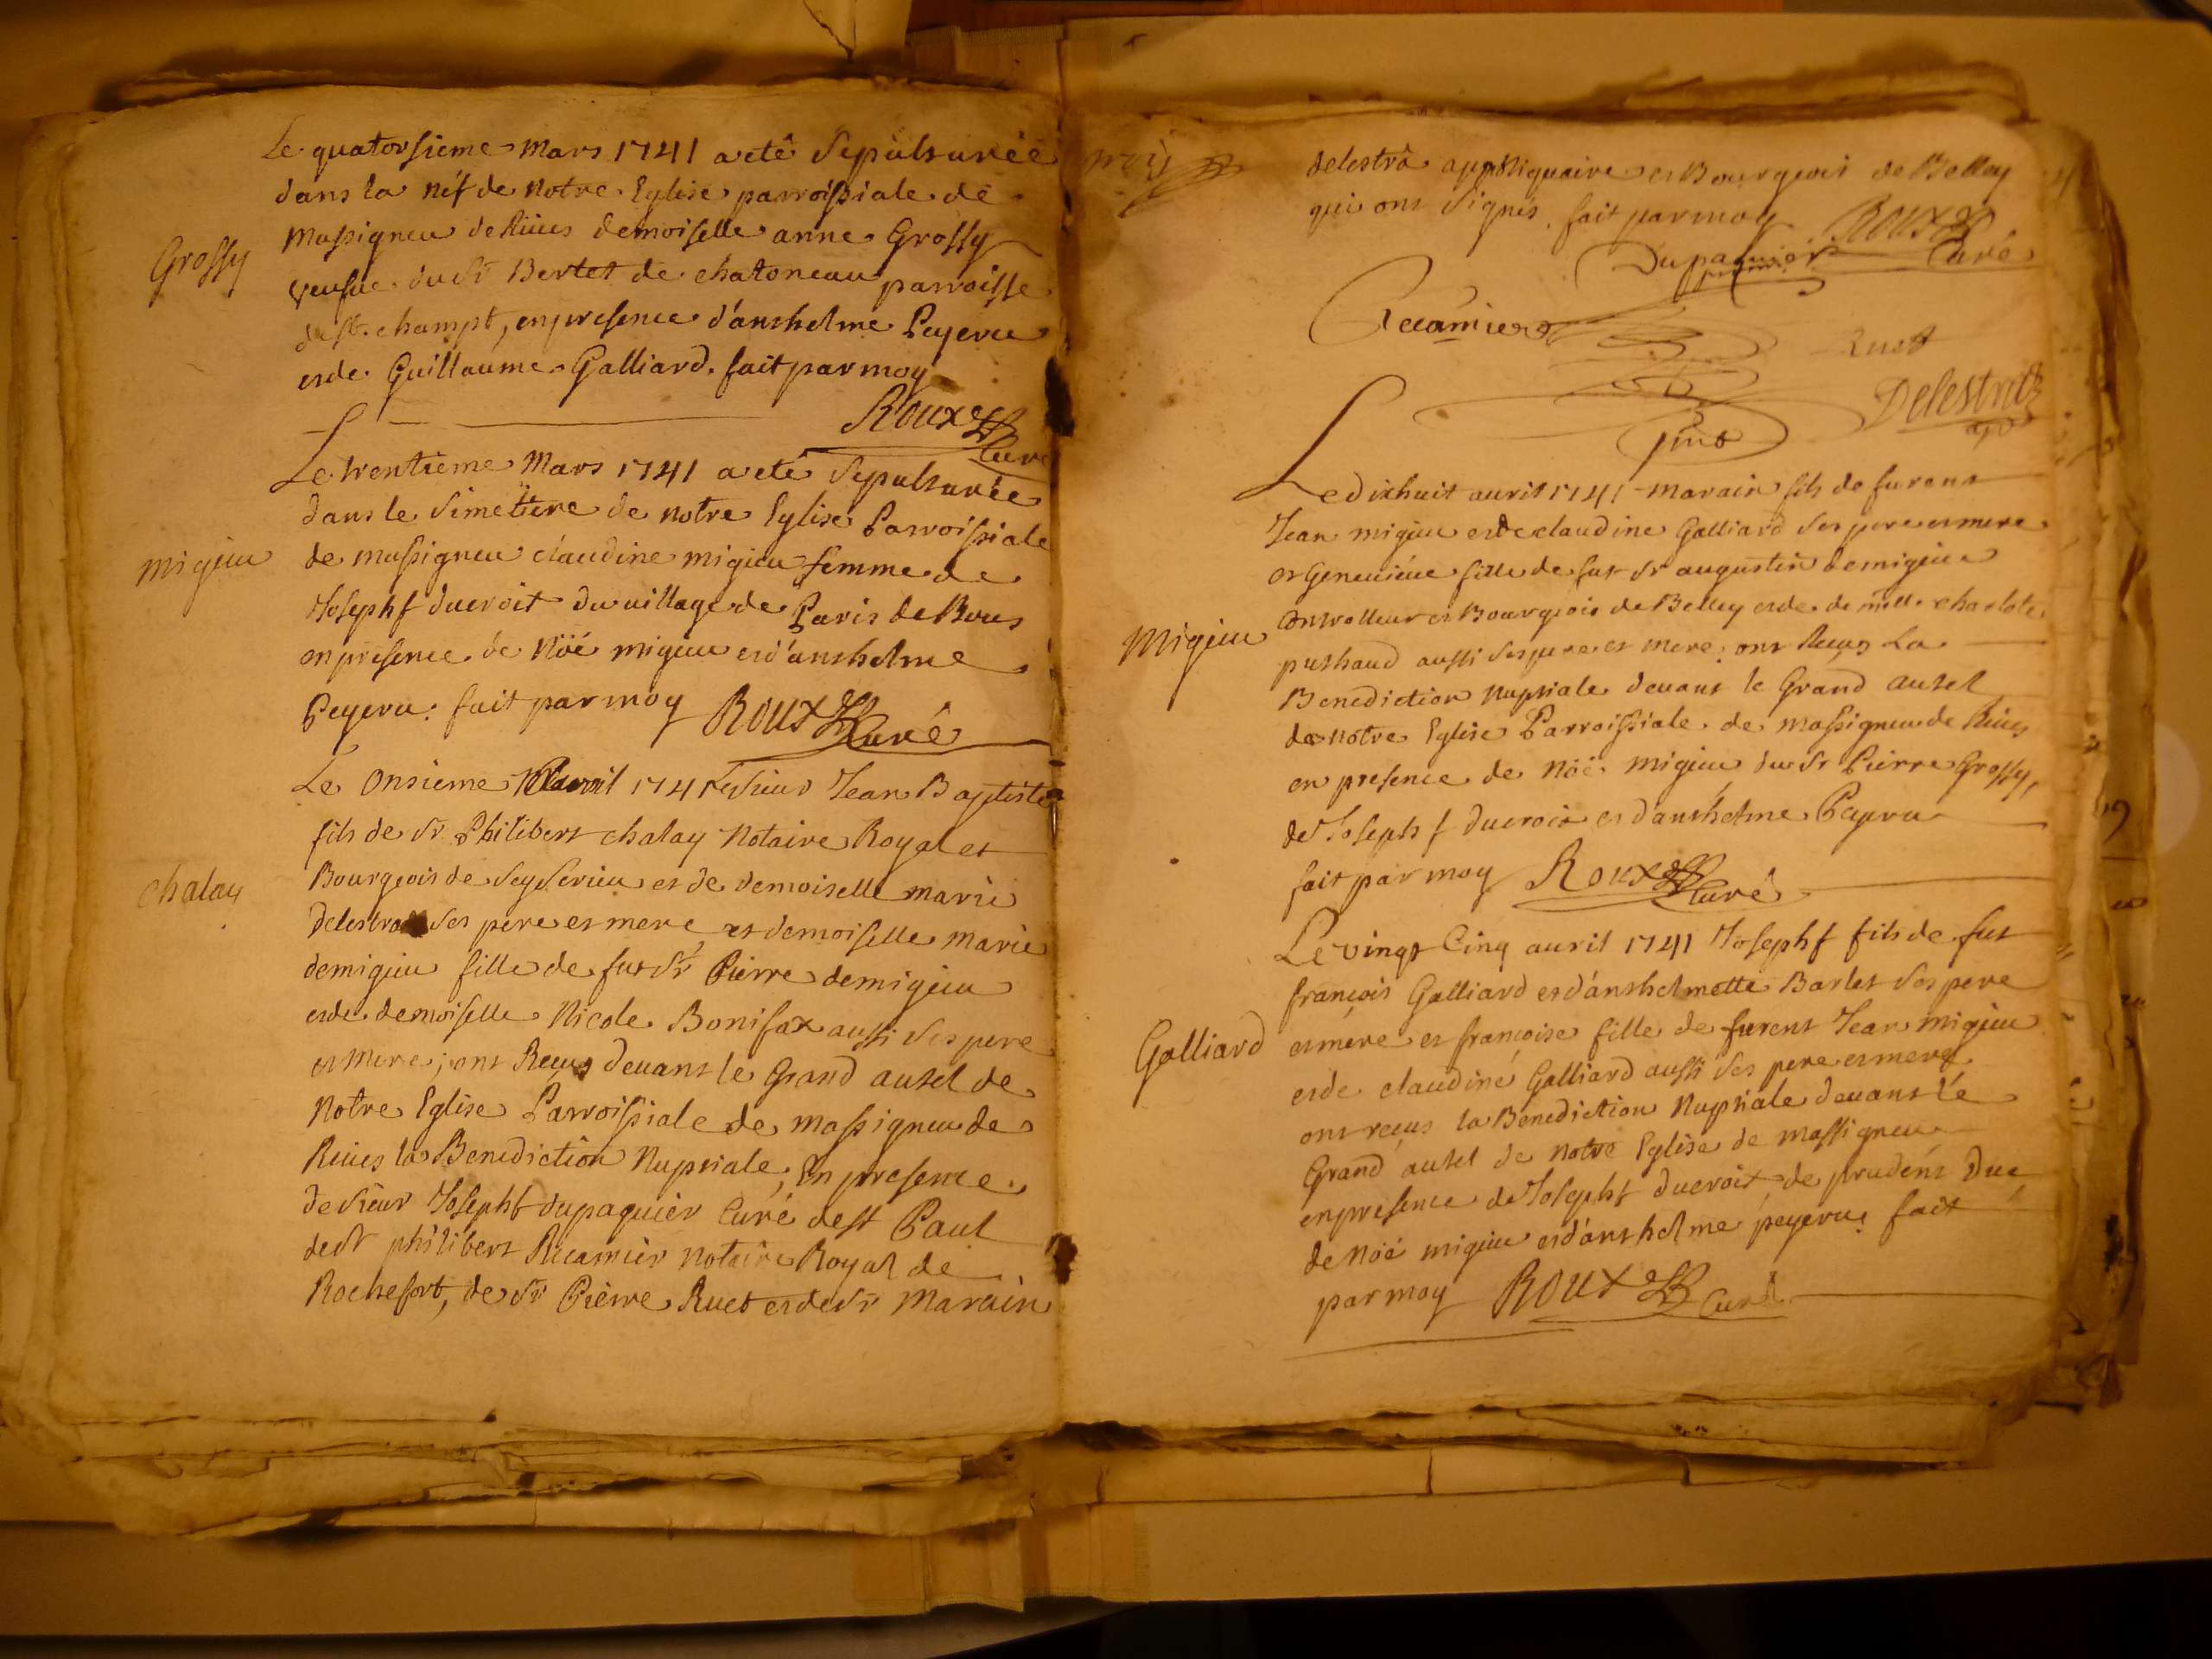 Le quatorsieme Mars 1741 a eté Sepulturéé
dans la Néf de Notre Eglise parroissiale de
Grossy
Massigneu de Rives demoiselle anne Grossy
veufue du Sr Bertet de chatoneau parroisse
de st. champt, en presence d'anthelme Peyeru
et de Guillaume Galliard. fait par moy
Roux Curé
Le trentieme Mars 1741 a eté Sepulturée
dans le Simetiere de notre Eglise Parroissiale
migieu
de massigneu claudine migieu femme de
Josephf ducroit du village de Paris de Bous
en presence de Nöé migieu et d'anthelme
Peyeru. fait par moy Roux Curé
Le Onsieme avril 1741 le sieur Jean Baptiste
fils de Sr Philibert chalay Notaire Royal et
chalay
Bourgeois de Seyserieu et de demoiselle marie
Delestra ses pere et mere et demoiselle marie
demigieu fille de fut Sr Pierre demigieu
et de demoiselle Nicole Bonifax aussi ses pere
et mere; ont Reçus devant le Grand autel de
Notre Eglise Parroissiale de massigneu de
Rives la Benediction Nuptiale, En presence
de sieur Josephf dupaquier Curé de st Paul
de Sr philibert Recamier notaire Royal de
Rochefort, de Sr Pierre Ruet et de Sr Marain
delestra appotiquaire et Bourgeois de Belley
qui ont signés. fait par moy Roux Curé
Dupaquier
Recamier
Ruet
Delestra
Le dixhuit auril 1741 marain fils de furent
Jean migieu et de claudine Galliard ses pere et mere
et Geneuiéue fille de fut Sr augustin demigieu
Controlleur et Bourgeois de Belley et de demlle charlote
Migieu
puthaud aussi ses pere et mere; ont Reçus La
Benediction Nuptiale deuant le Grand autel
de notre Eglise Parroissiale de massigneu de Riues
en presence de Nöé migieu du Sr Pierre Grossy,
de Josephf ducroit et d'anthelme Peyeru
fait par moy Roux Curé
Le vingt Cinq auril 1741 Josephf fils de fut
françois Galliard et d'anthelmette Barlet ses pere
Galliard
et mére et françoise fille de furent Jean migieu
et de claudine Galliard aussi ses pere et mere
ont reçus la Benediction Nuptiale deuant le
Grand autel de notre Eglise de massigneu
en presence de Josephf ducroit, de prudent Duc
de Nöé migieu et d'anthelme peyeru. fait
par moy Roux Curé